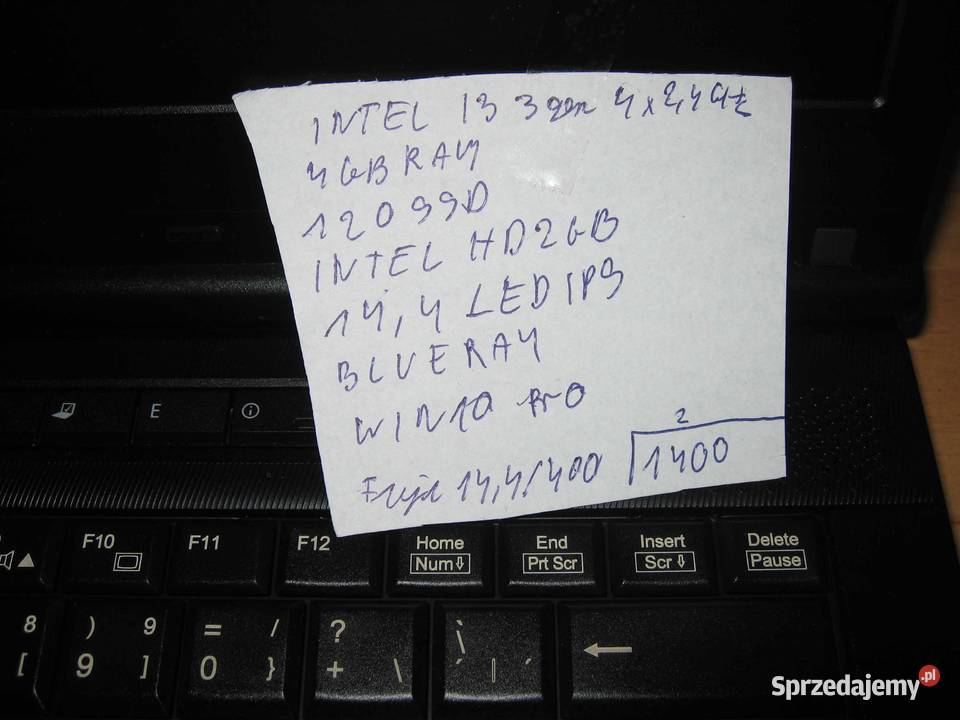 INTEL I3 3 gen 4x2,4 GHz
4GB RAM
120 SSD
INTEL HD 2GB
14,4 LED IPS
BLUERAY
WIN10 PRO
14,4/400
2
1400
E
F10
F11
F12
Home
Num⇩
End
Prt Scr
Insert
Scr⇩
Delete
Pause
8 ) 9 = / ? `
[ 9 ] 0 } + \ ´ | ´
Sprzedajemy.pl